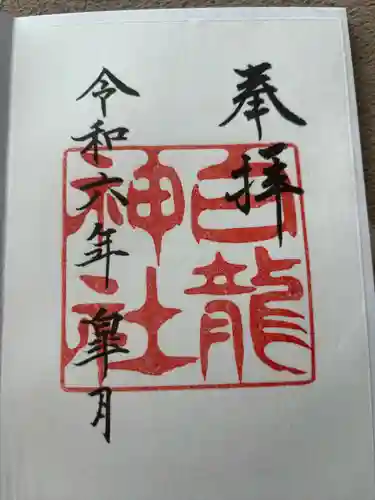 奉拝
白龍
神社
令和六年皐月